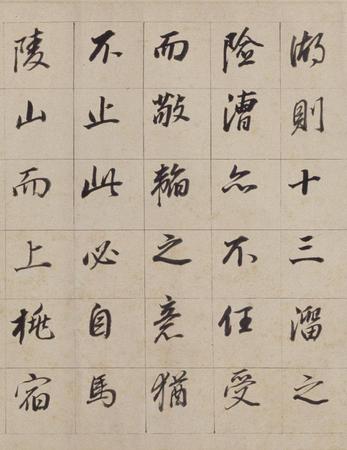 湖則十三溜之
險漕亦不任受
而敬之意猶
不止此必自馬
陵山而上桃宿